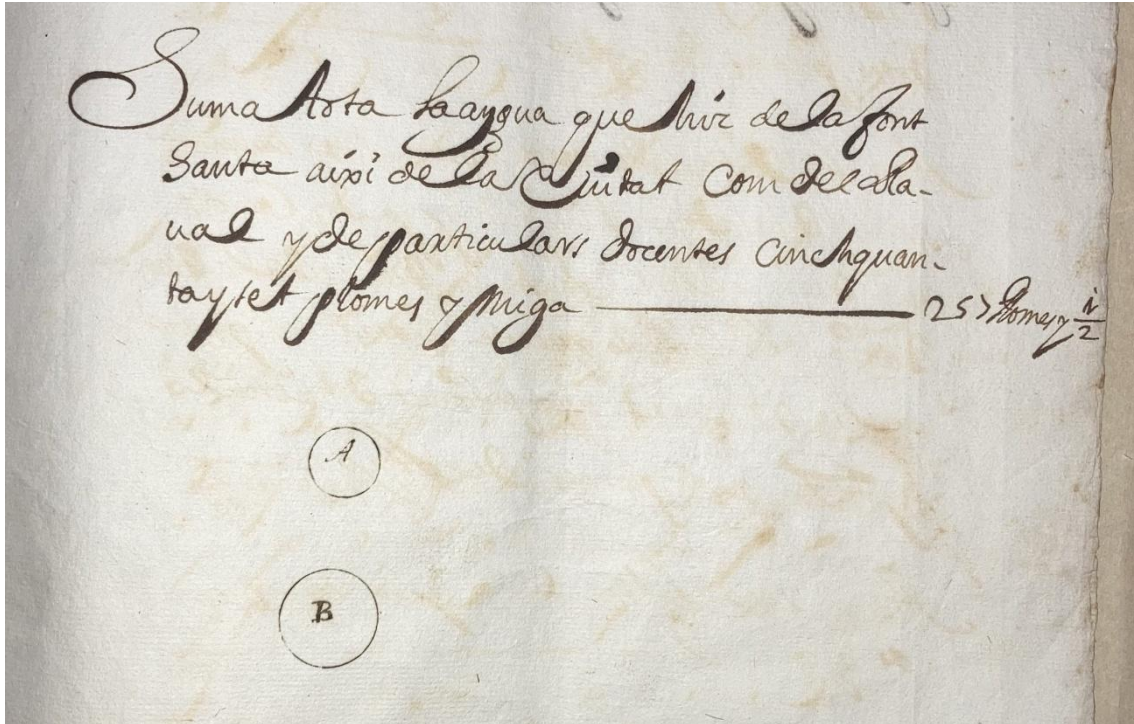 Suma tota la aygua que hix de la font
Santa aixi de la Ciutat com de la Ra-
ual y de particulars docentes cinchquan-
ta y set plomes y miga 257 plomes y 1/2
A
B